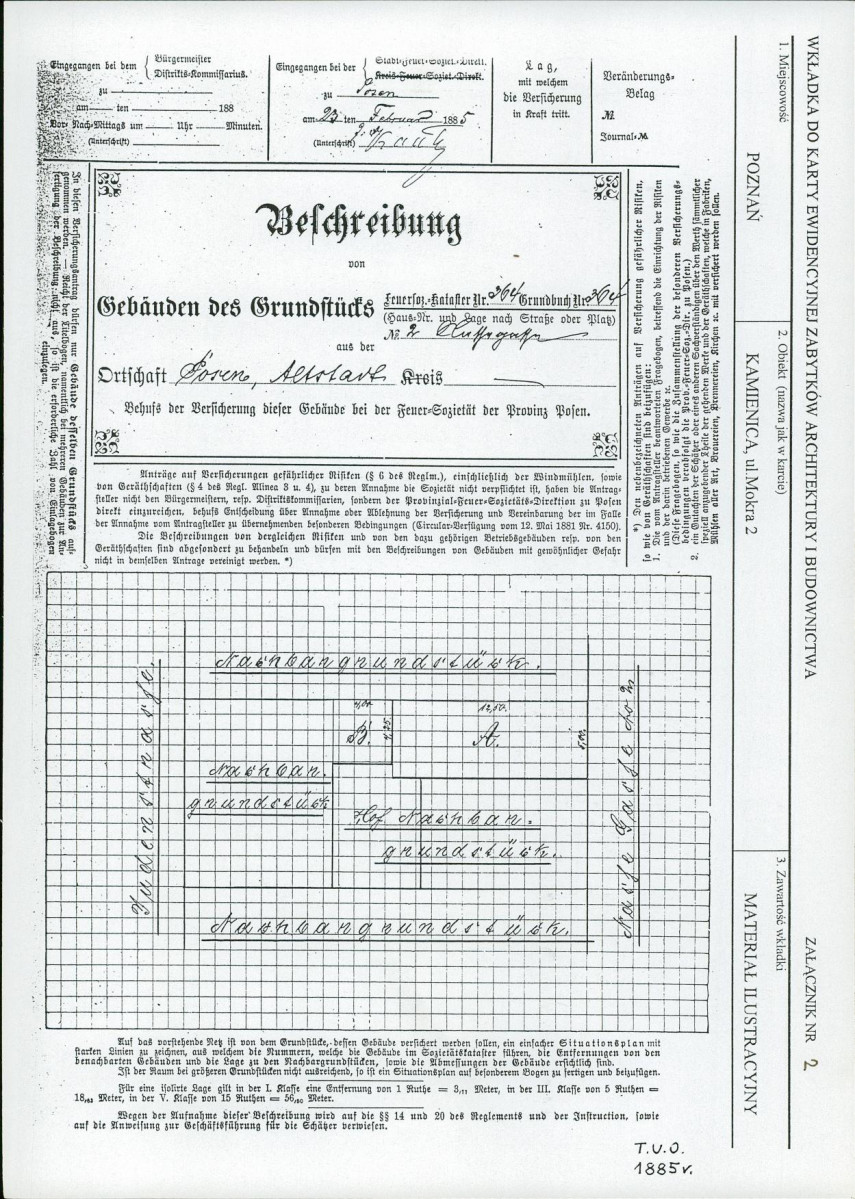 Eingegangen bei dem
Bürgermeister
Distrikts-Kommissarius.
zu
am ten 188
Vor- Nach-Mittags um Uhr Minuten.
(Unterschrift)
Eingegangen bei der
Stadt-Feuer-Soziet.-Direkt.
Kreis-Feuer-Soziet.-Direkt.
zu Posen
am 23 ten Februar 1885
(Unterschrift)
Tag,
mit welchem
die Versicherung
in Kraft tritt.
Veränderungs-
Belag
№
Journal-№
In diesen Versicherungsantrag dürfen nur Gebäude desselben Grundstücks auf-
genommen werden. — Reicht der Titelbogen, namentlich bei mehreren Gebäuden zur An-
fertigung der Beschreibung nicht aus, so ist die erforderliche Zahl von Einlagebogen
einzulegen.
Beschreibung
von
Gebäuden des Grundstücks
Feuersoz.-Kataster Nr. 364 Grundbuch Nr. 364
(Haus-Nr. und Lage nach Straße oder Platz)
№ 2 Nassegasse
aus der
Ortschaft Posen, Altstadt Kreis
Behufs der Versicherung dieser Gebäude bei der Feuer-Sozietät der Provinz Posen.
*) Den nebenbezeichneten Anträgen auf Versicherung gefährlicher Risiken,
so wie von Geräthschaften sind beizufügen:
1. Die vom Antragsteller beantworteten Fragebogen, betreffend die Einrichtung der Risiken
und der darin betriebenen Gewerbe ꝛc.
(Diese Fragebogen, so wie die Zusammenstellung der besonderen Versicherungs-
bedingungen verabfolgt die Prov.-Feuer-Soz.-Dir. zu Posen.)
2. ein Gutachten der Schätzer oder eines anderen Sachverständigen über den Werth sämmtlicher
speziell anzugebender Theile der gehenden Werke und der Geräthschaften, welche in Fabriken,
Mühlen aller Art, Brauereien, Brennereien, Kirchen ꝛc. mit versichert werden sollen.
Anträge auf Versicherungen gefährlicher Risiken (§ 6 des Reglm.), einschließlich der Windmühlen, sowie
von Geräthschaften (§ 4 des Regl. Alinea 3 u. 4), zu deren Annahme die Sozietät nicht verpflichtet ist, haben die Antrag-
steller nicht den Bürgermeistern, resp. Distriktskommissarien, sondern der Provinzial-Feuer-Sozietäts-Direktion zu Posen
direkt einzureichen, behufs Entscheidung über Annahme oder Ablehnung der Versicherung und Vereinbarung der im Falle
der Annahme vom Antragsteller zu übernehmenden besonderen Bedingungen (Circular-Verfügung vom 12. Mai 1881 Nr. 4150).
Die Beschreibungen von dergleichen Risiken und von den dazu gehörigen Betriebsgebäuden resp. von den
Geräthschaften sind abgesondert zu behandeln und dürfen mit den Beschreibungen von Gebäuden mit gewöhnlicher Gefahr
nicht in demselben Antrage vereinigt werden. *)
Nachbargrundstück.
Judenstrasse.
B.
4.25.
12,50.
A.
Nachbar.
grundstück
Hof. Nachbar-
grundstück.
Nasse Gasse
Nachbargrundstück.
Auf das vorstehende Netz ist von dem Grundstücke, dessen Gebäude versichert werden sollen, ein einfacher Situationsplan mit
starken Linien zu zeichnen, aus welchem die Nummern, welche die Gebäude im Sozietätskataster führen, die Entfernungen von den
benachbarten Gebäuden und die Lage zu den Nachbargrundstücken, sowie die Abmessungen der Gebäude ersichtlich sind.
Ist der Raum bei größeren Grundstücken nicht ausreichend, so ist ein Situationsplan auf besonderem Bogen zu fertigen und beizufügen.
Für eine isolirte Lage gilt in der I. Klasse eine Entfernung von 1 Ruthe = 3,77 Meter, in der III. Klasse von 5 Ruthen =
18,83 Meter, in der V. Klasse von 15 Ruthen = 56,50 Meter.
Wegen der Aufnahme dieser Beschreibung wird auf die §§ 14 und 20 des Reglements und der Instruction, sowie
auf die Anweisung zur Geschäftsführung für die Schätzer verwiesen.
T.U.O.
1885r.
WKŁADKA DO KARTY EWIDENCYJNEJ ZABYTKÓW ARCHITEKTURY I BUDOWNICTWA
ZAŁĄCZNIK NR 2
1. Miejscowość
POZNAŃ
2. Obiekt (nazwa jak w karcie)
KAMIENICA, ul.Mokra 2
3. Zawartość wkładki
MATERIAŁ ILUSTRACYJNY